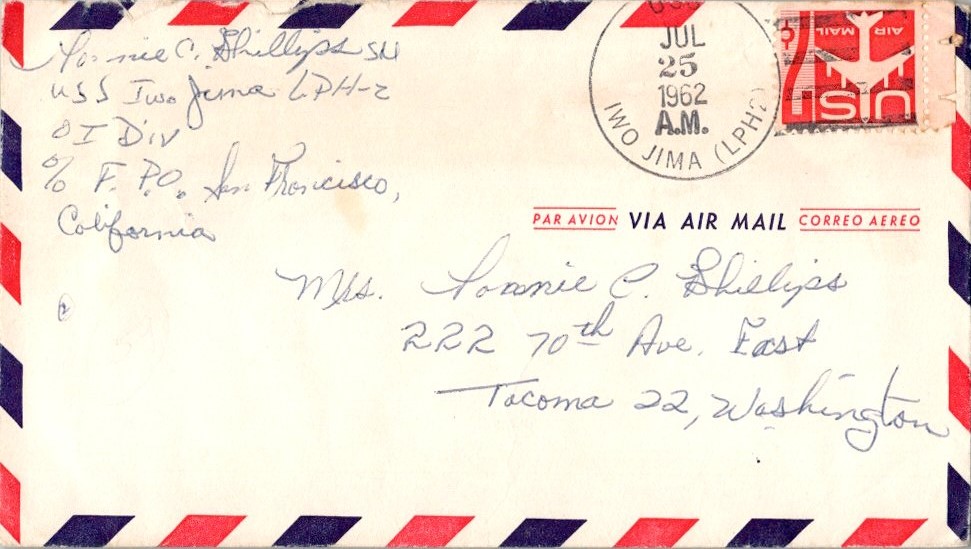 Lonnie C. Phillips SN
USS Iwo Jima LPH-2
OI Div
% F. P.O. San Francisco,
California
JUL
25
1962
A.M.
IWO JIMA (LPH2)
AIR MAIL
US
PAR AVION VIA AIR MAIL CORREO AEREO
Mrs. Lonnie C. Phillips
222 70th Ave. East
Tacoma 22, Washington